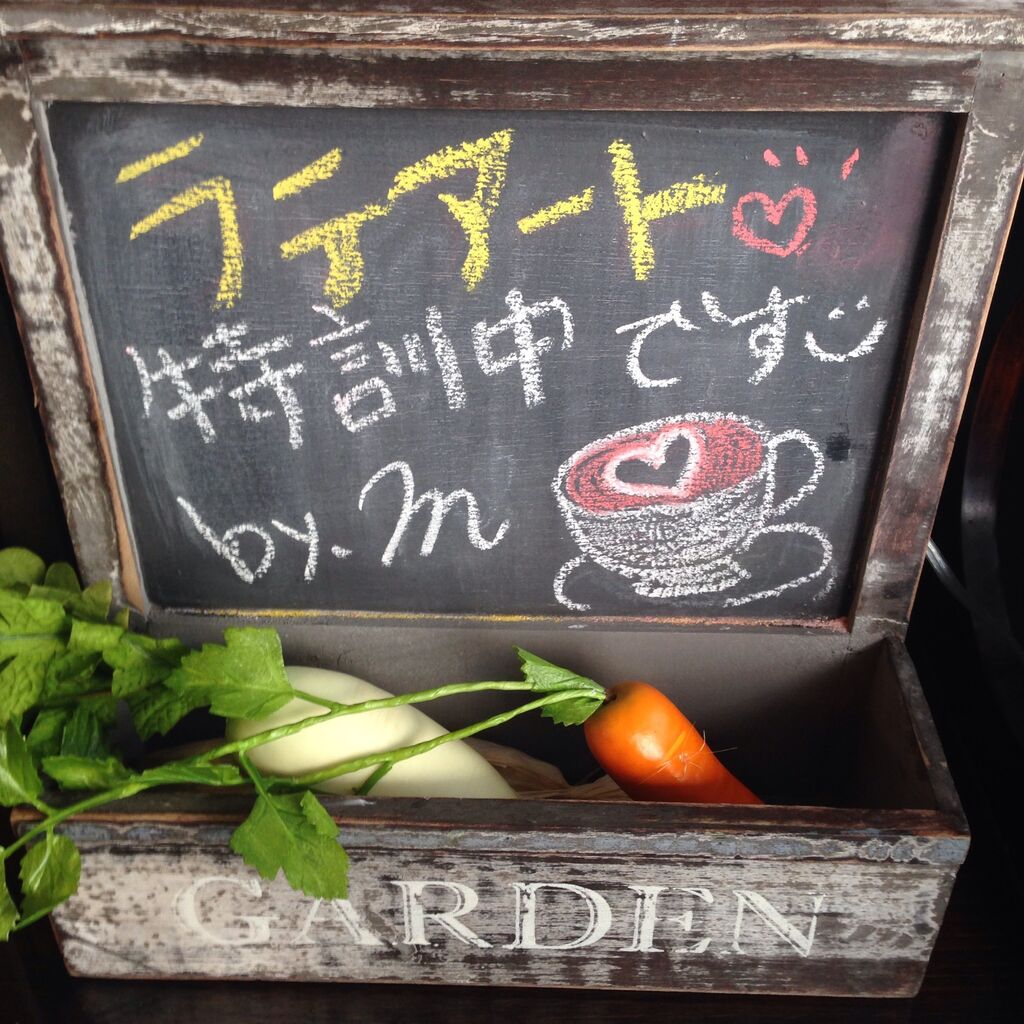 ラテアート
特訓中です
by.m
GARDEN